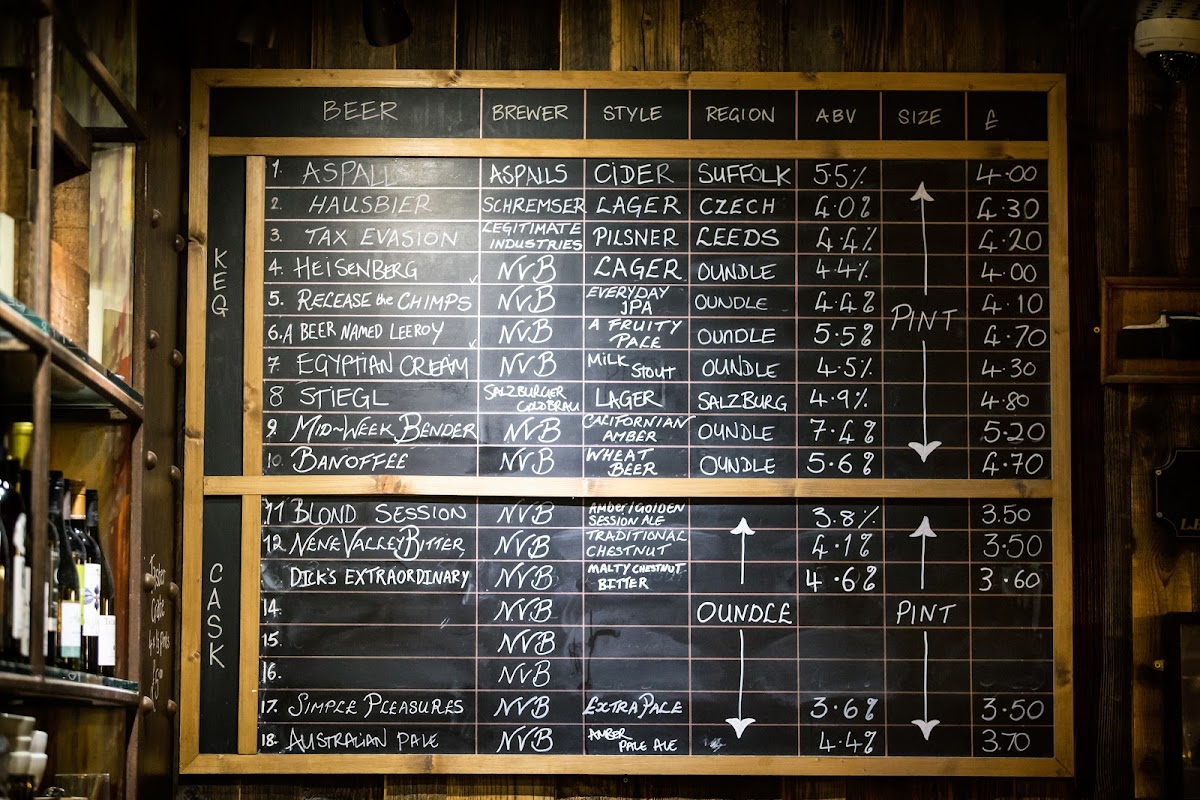 BEER BREWER STYLE REGION ABV SIZE £
KEG
1. ASPALL ASPALLS CIDER SUFFOLK 5.5% 4.00
2. HAUSBIER SCHREMSER LAGER CZECH 4.0% 4.30
3. TAX EVASION LEGITIMATE INDUSTRIES PILSNER LEEDS 4.4% 4.20
4. HEISENBERG NVB LAGER OUNDLE 4.4% 4.00
5. RELEASE the CHIMPS NVB EVERYDAY IPA OUNDLE 4.4% 4.10
PINT
6. A BEER NAMED LEEROY NVB A FRUITY PALE OUNDLE 5.5% 4.70
7 EGYPTIAN CREAM NVB MILK STOUT OUNDLE 4.5% 4.30
8 STIEGL SALZBURGER COLDBRAU LAGER SALZBURG 4.9% 4.80
9. MID-WEEK BENDER NVB CALIFORNIAN AMBER OUNDLE 7.4% 5.20
10. BANOFFEE NVB WHEAT BEER OUNDLE 5.6% 4.70
CASK
11 BLOND SESSION NVB AMBER/GOLDEN SESSION ALE 3.8% 3.50
12. NENE VALLEY BITTER NVB TRADITIONAL CHESTNUT 4.1% 3.50
DICK'S EXTRAORDINARY NVB MALTY CHESTNUT BITTER 4.6% 3.60
14. N.V.B OUNDLE PINT
15. NVB
16. NVB
17. SIMPLE PLEASURES NVB EXTRA PALE 3.6% 3.50
18. AUSTRALIAN PALE NVB AMBER PALE ALE 4.4% 3.70